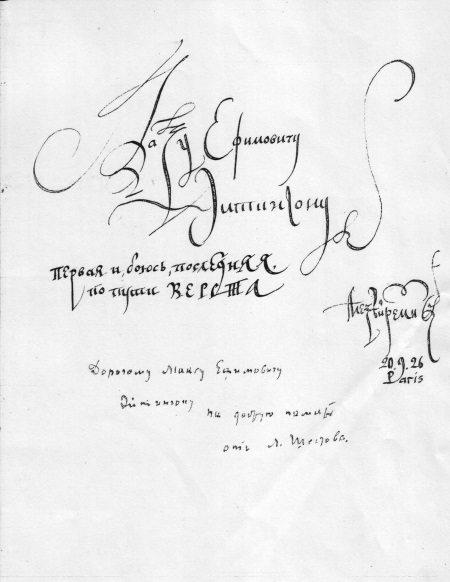 Максу Ефимовичу
Эйтингону
первая и, боюсь, последняя.
по пути ВЕРСТА
Алексѣй Ремизов
20.9.26
Paris
Дорогому Максу Ефимовичу
Эйтингону на добрую память
отъ Л. Шестова.